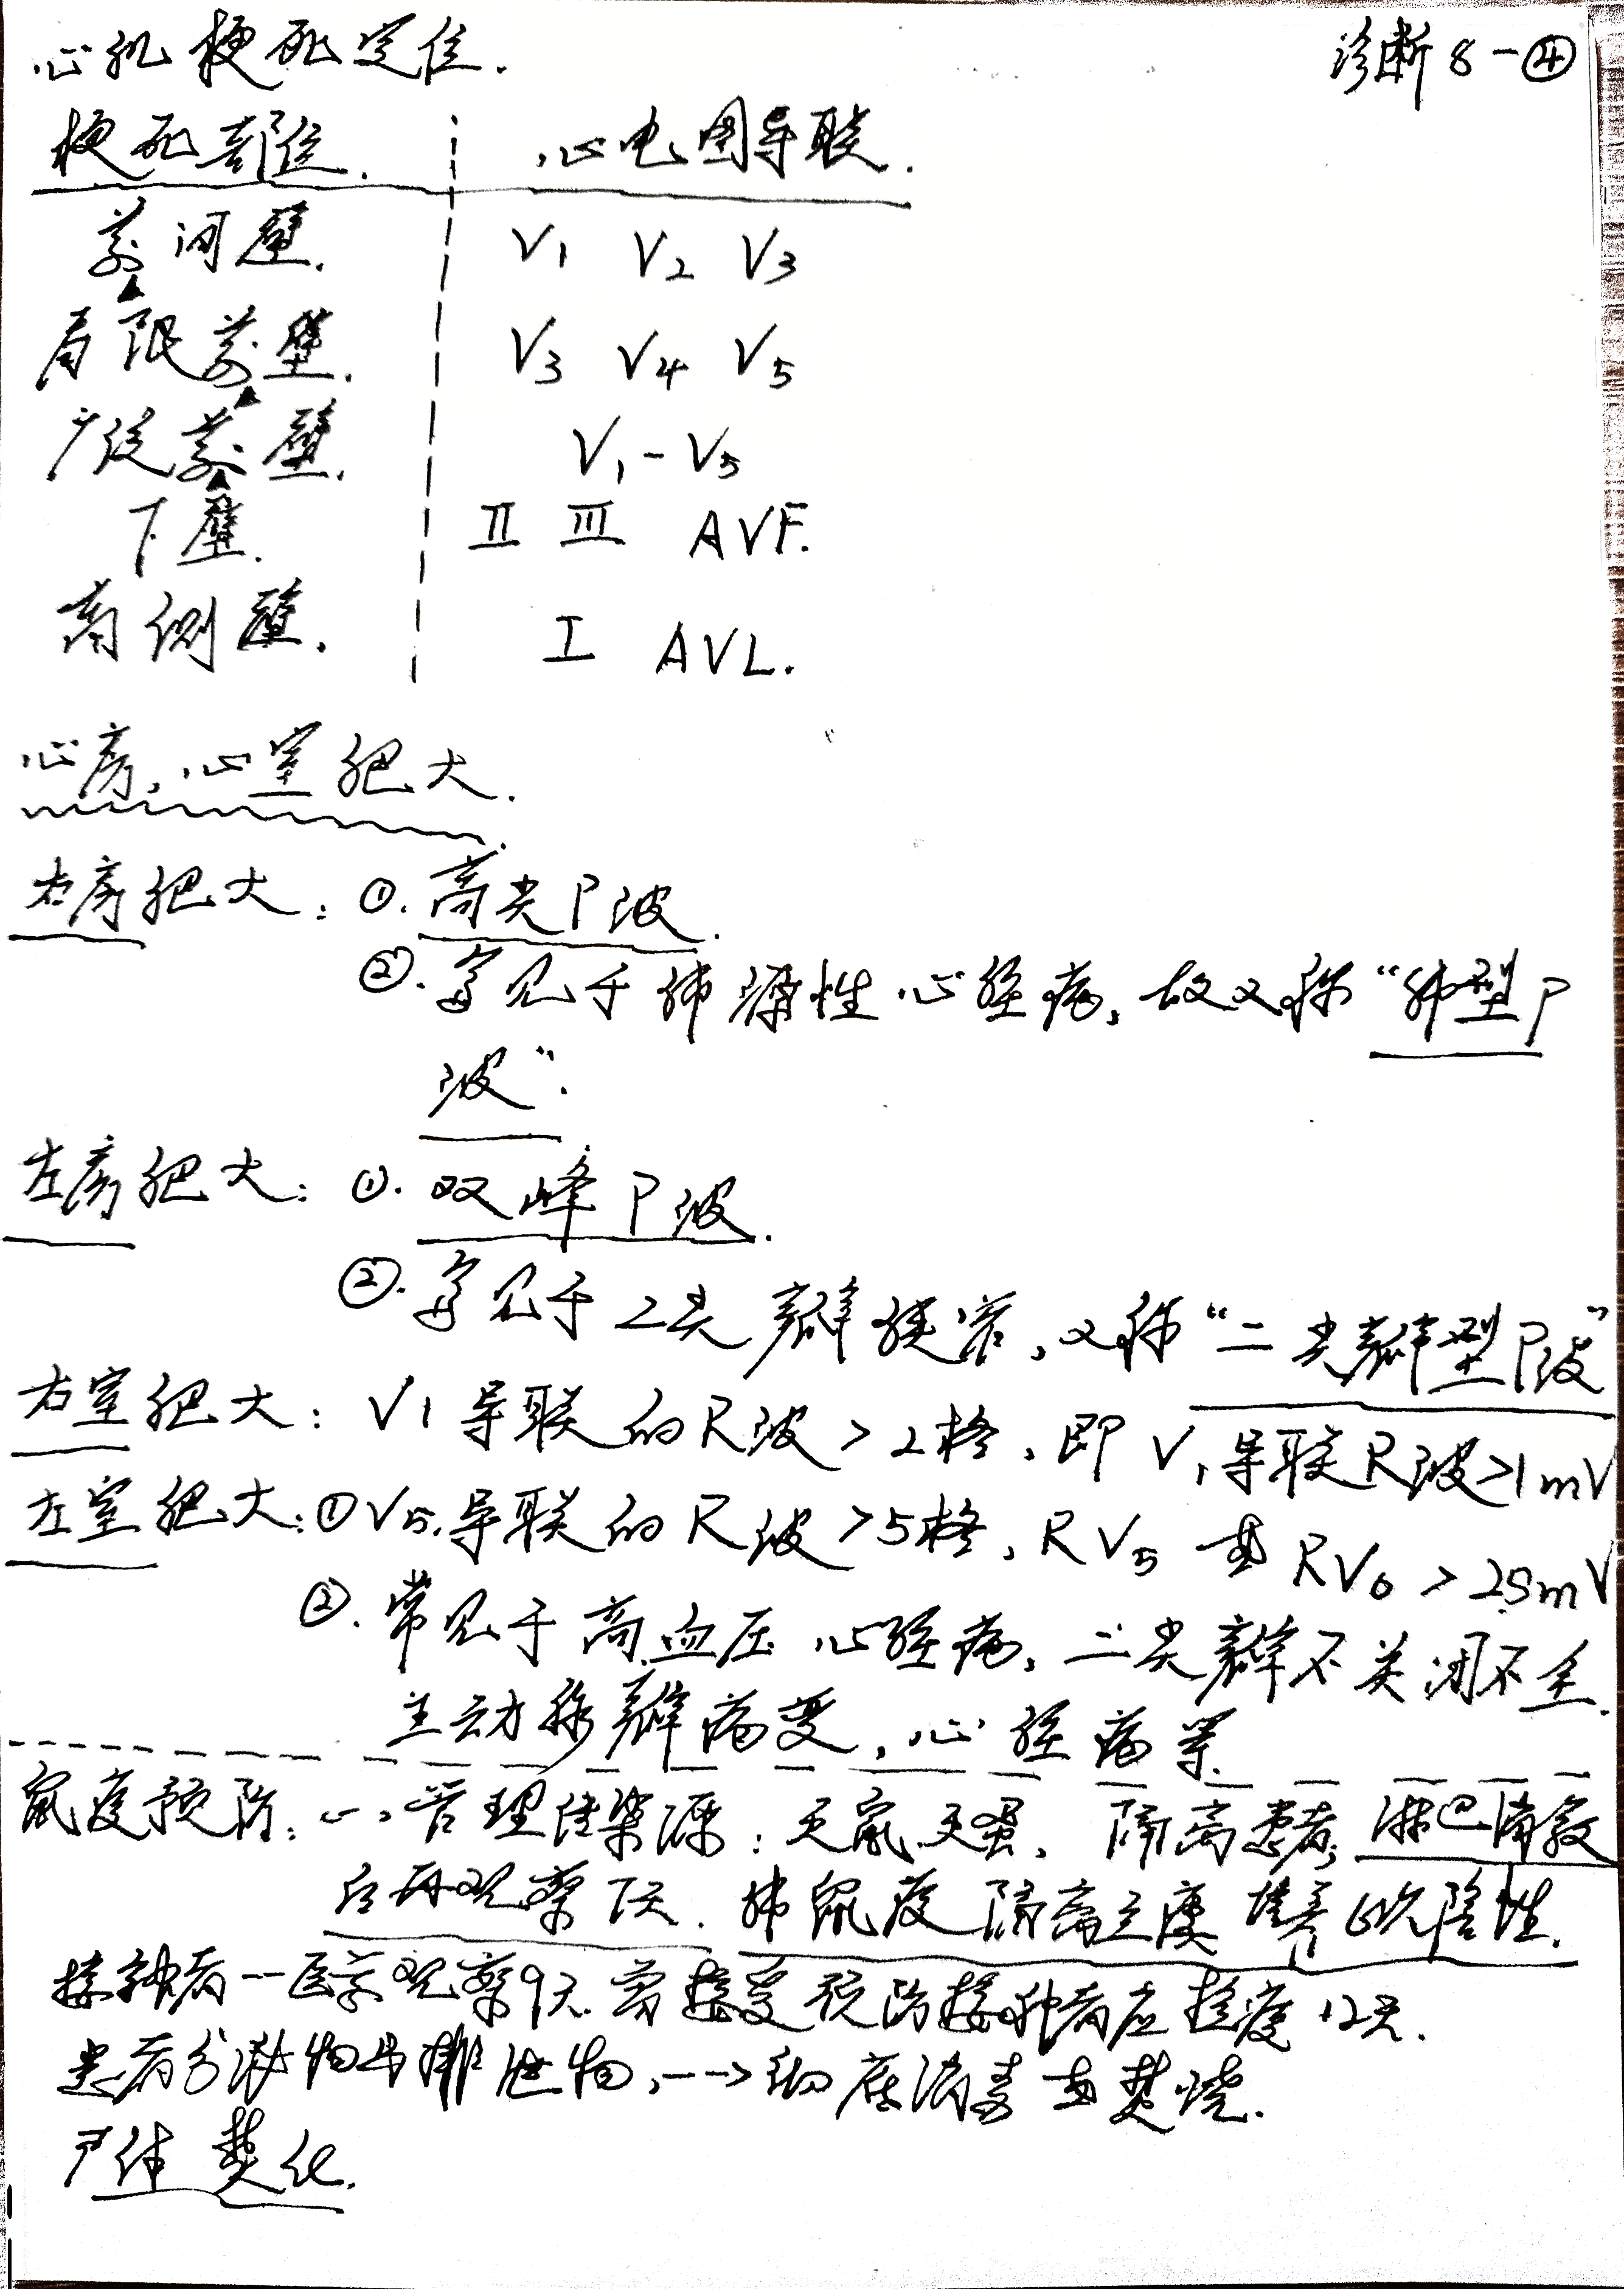 诊断8-④
心肌梗死定位.
梗死部位. 心电图导联.
前间壁. V1 V2 V3
局限前壁. V3 V4 V5
广泛前壁. V1-V5
下壁. II III AVF.
高侧壁. I AVL.
心房,心室肥大.
右房肥大:①.高尖P波.
②.常见于肺源性心脏病,故又称“肺型P
波”.
左房肥大:①.双峰P波.
②.常见于二尖瓣狭窄,又称“二尖瓣型P波”
右室肥大:V1导联的R波>2格,即V1导联R波>1mV
左室肥大:①V5导联的R波>5格,RV5或RV6>2.5mV
②.常见于高血压心脏病,二尖瓣不关闭不全.
主动脉瓣病变,心脏病等.
鼠疫预防:㈠管理传染源:灭鼠灭蚤,隔离患者,淋巴消散
后再观察7天.肺鼠疫隔离至痰培养6次阴性.
接触者--医学观察9天.曾接受预防接种者应检疫12天.
患者分泌物与排泄物,-->彻底消毒或焚烧.
尸体焚化.